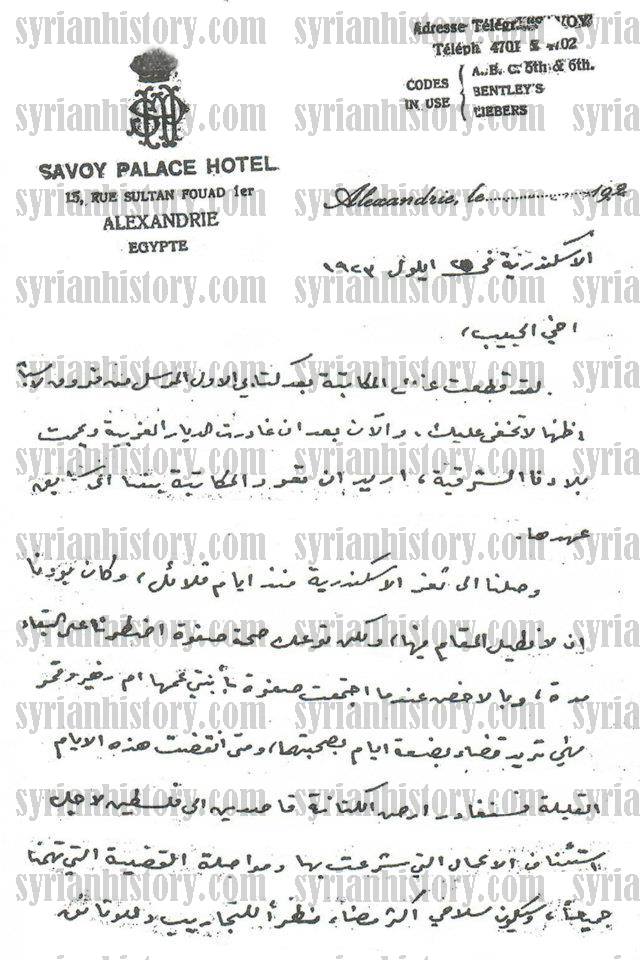 Adresse Télégr: SAVOY
Téléph 4701 & 4702
CODES IN USE
A. B. C. 5th & 6th.
BENTLEY'S
LIEBERS
SAVOY PALACE HOTEL
15, RUE SULTAN FOUAD 1er
ALEXANDRIE
EGYPTE
Alexandrie, le 192
الاسكندرية في ايلول ١٩٢٣
اخي الحبيب،
لقد قطعت عن المكاتبة بعد كتابي الاول المرسل من فروق
اظنها لا تخفى عليك. والآن بعد ان غادرت الديار الغربية ويممت
بلادنا الشرقية، اريد ان تعود المكاتبة بيننا الى سابق
عهدها.
وصلنا الى ثغر الاسكندرية منذ ايام قلائل، وكان بودنا
ان لا نطيل المقام فيها، ولكن توعك صحة صفوة اضطرنا على البقاء
مدة، وبالاخص عندما اجتمعت صفوة بأبنتي عمها ام
فهي تريد قضاء بضعة ايام بصحبتهما، ومتى انقضت هذه الايام
القليلة فسنغادر ارض الكنانة قاصدين الى فلسطين لاجل
استئناف الاعمال التي شرعت بها ومواصلة القضية التي تهمنا
جميعاً، وسيكون سلاحي اكثر مضاء نظراً للتجاريب والوثائق
syrianhistory.com